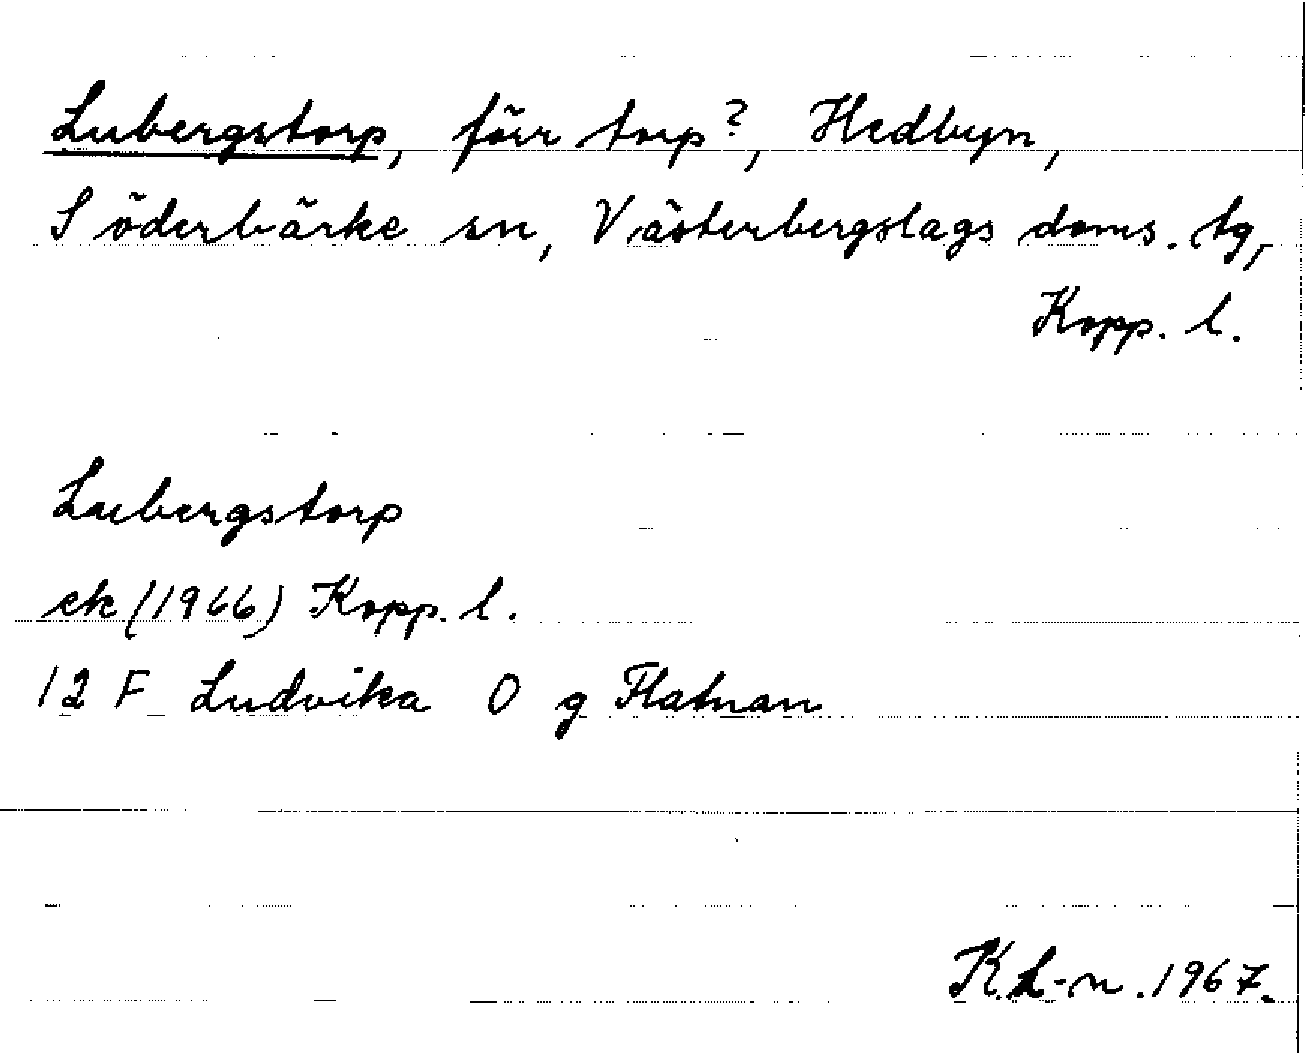 Lubergstorp, förr torp?, Hedbyn,
Söderbärke sn, Västerbergslags doms. tg,
Kopp. l.
Lubergstorp
ek (1966) Kopp. l.
12 F Ludvika O g Flatnan
K.L-n. 1967.